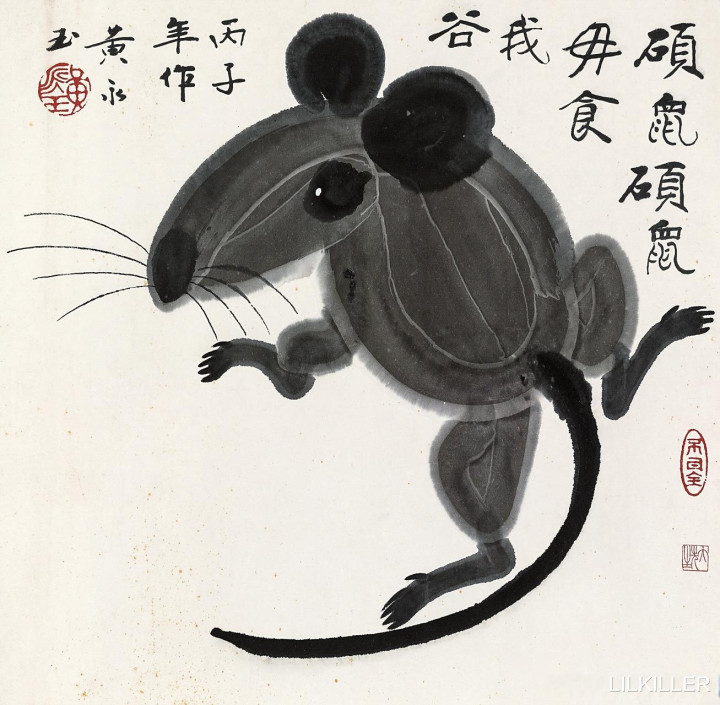 碩鼠碩鼠
毋食
我
谷
丙子
年作
黄永
玉
LILKILLER